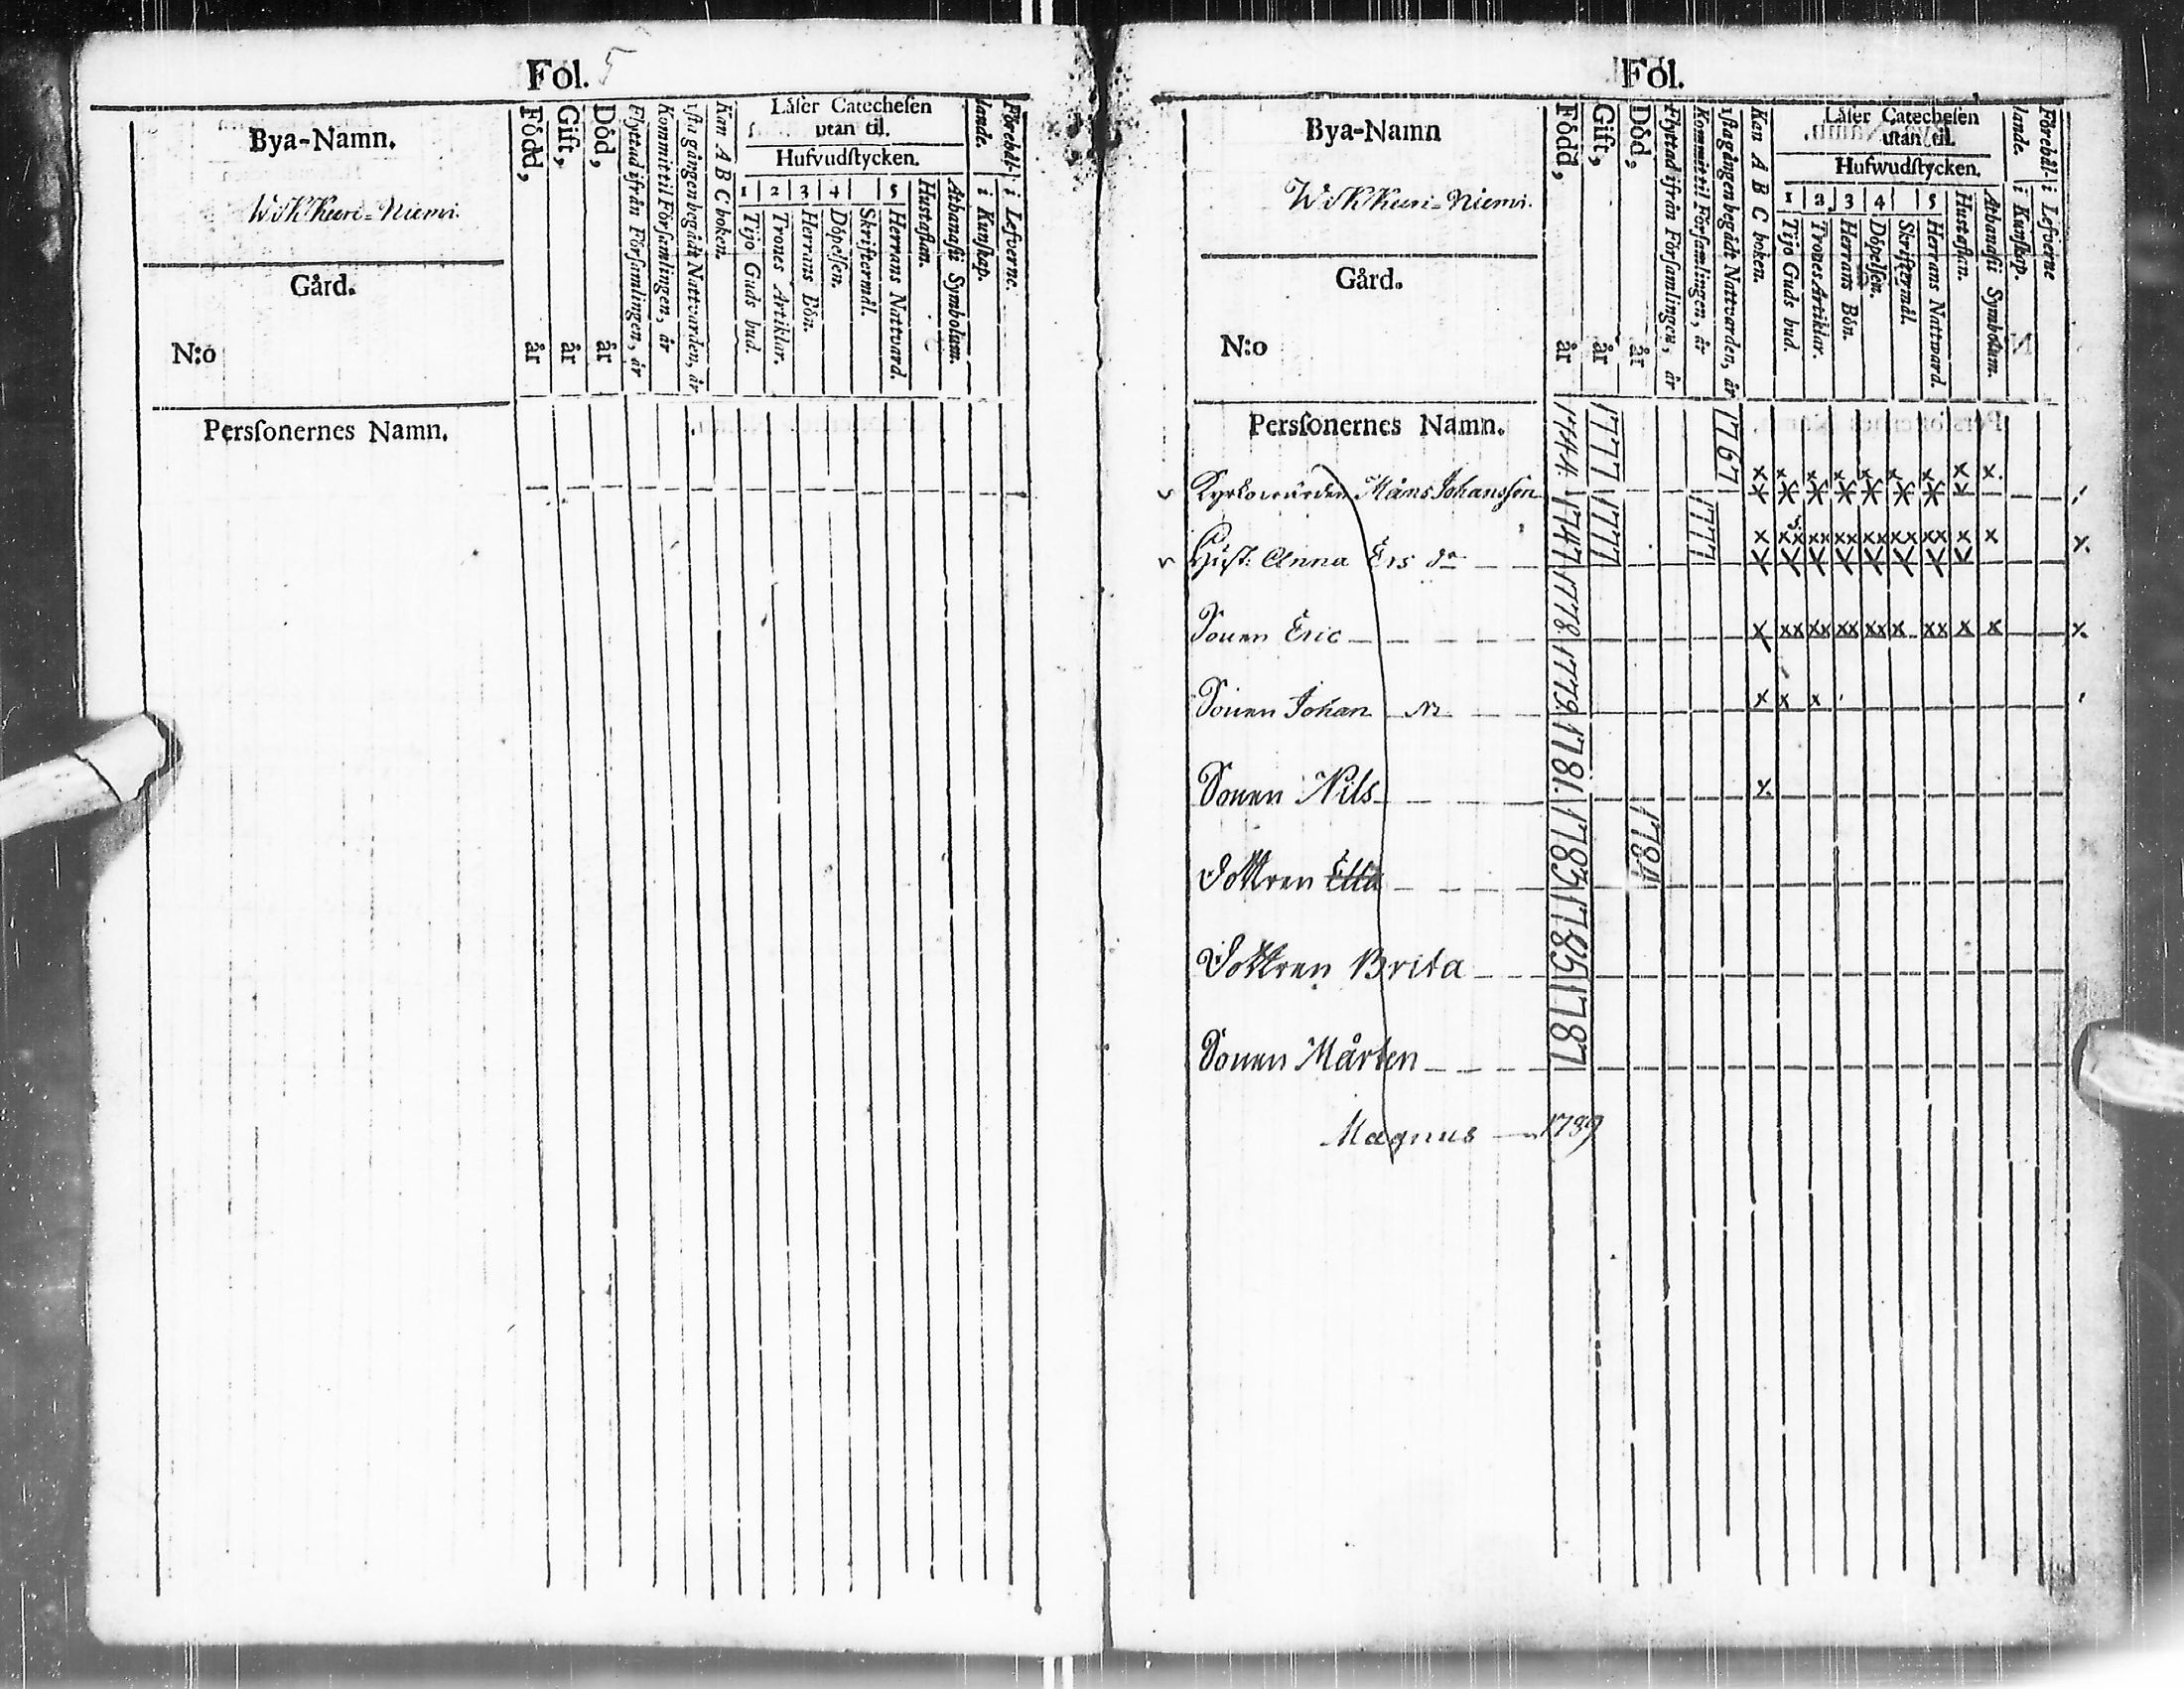 Fol. 5
Bya-Namn.
Wikkuri-Niemi.
Gård.
N:o
Persſonernes Namn.
Född, år
Gift, år
Död, år
Flyttad ifrån Förſamlingen, år
Kommit til Förſamlingen, år
1ſta gången begådt Nattvarden, år
Kan A B C boken.
Läſer Catecheſen
utan til.
Hufvudſtycken.
1 2 3 4 5
Tijo Guds bud.
Trones Artiklar.
Herrans Bön.
Döpelſen.
Skriftermål.
Herrans Nattvard.
Hustaflan.
Athanaſii Symbolum.
Förehål-
lande.
i Kunſkap.
i Lefverne.
Fol.
Bya-Namn
Wikkuri-Niemi.
Gård.
N:o
Persſonernes Namn.
Född, år
Gift, år
Död, år
Flyttad ifrån Förſamlingen, år
Kommit til Förſamlingen, år
1ſta gången begådt Nattvarden, år
Kan A B C boken.
Läſer Catecheſen
utan til.
Hufwudſtycken.
1 2 3 4 5
Tijo Guds bud.
Trones Artiklar.
Herrans Bön.
Döpelſen.
Skriftermål.
Herrans Nattward.
Hustaflan.
Athanaſii Symbolum.
Förehål-
lande.
i Kunſkap.
i Lefverne
Kyrkowärden Måns Johansſon 1744 1777 1767
Huſt. Anna Ers dr 1747 1777 1777
Sonen Eric 1778
Sonen Johan 1779
Sonen Nils 1781
Dottren Ella 1783 1784
Dottren Brita 1785
Sonen Mårten 1787
Magnus 1789